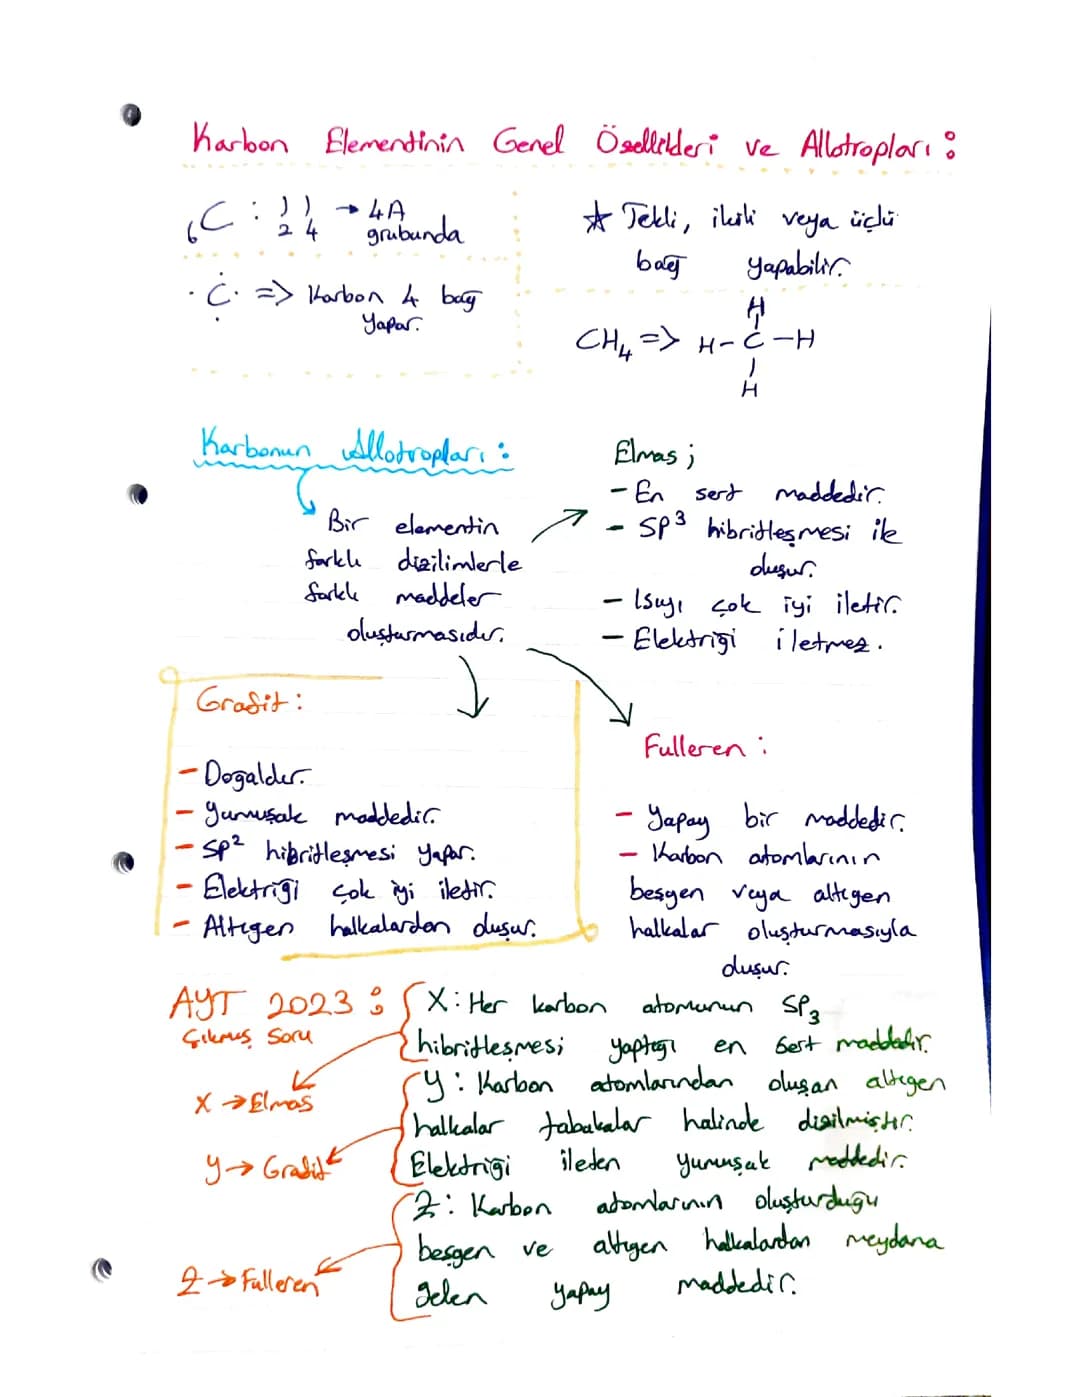 Karbon Elementinin Genel Özellikleri ve Allotropları:
₆C : )) → 4A
2 4 grubunda
·C· => Karbon 4 bağ
yapar.
☆ Tekli, ikili veya üçlü
bağ yapabilir.
H
CH₄ => H-C-H
H
Karbonun Allotropları:
Bir elementin
farklı dizilimlerle
farklı maddeler
oluşturmasıdır.
Elmas;
- En sert maddedir.
- SP³ hibritleşmesi ile
oluşur.
- Isıyı çok iyi iletir.
- Elektriği iletmez.
Grafit:
- Doğaldır.
- Yumuşak maddedir.
- SP² hibritleşmesi yapar.
- Elektriği çok iyi iletir.
- Altıgen halkalardan oluşur.
Fulleren:
- Yapay bir maddedir.
- Karbon atomlarının
beşgen veya altıgen
halkalar oluşturmasıyla
oluşur.
AYT 2023:
Çıkmış Soru
X: Her karbon atomunun SP₃
hibritleşmesi yaptığı en sert maddedir.
X → Elmas
Y: Karbon atomlarından oluşan altıgen
halkalar tabakalar halinde dizilmiştir.
Elektriği ileten yumuşak maddedir.
Y → Grafit
Z: Karbon atomlarının oluşturduğu
beşgen ve altıgen halkalardan meydana
gelen yapay maddedir.
Z → Fulleren